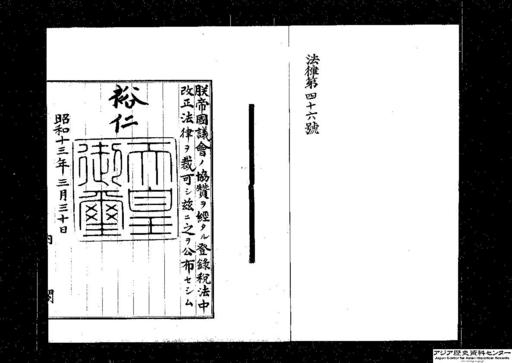 法律第四十六號
朕帝國議會ノ協贊ヲ經タル登錄稅法中
改正法律ヲ裁可シ玆ニ之ヲ公布セシム
裕仁
天皇
御璽
昭和十三年三月三十日
内閣
アジア歴史資料センター
Japan Center for Asian Historical Records